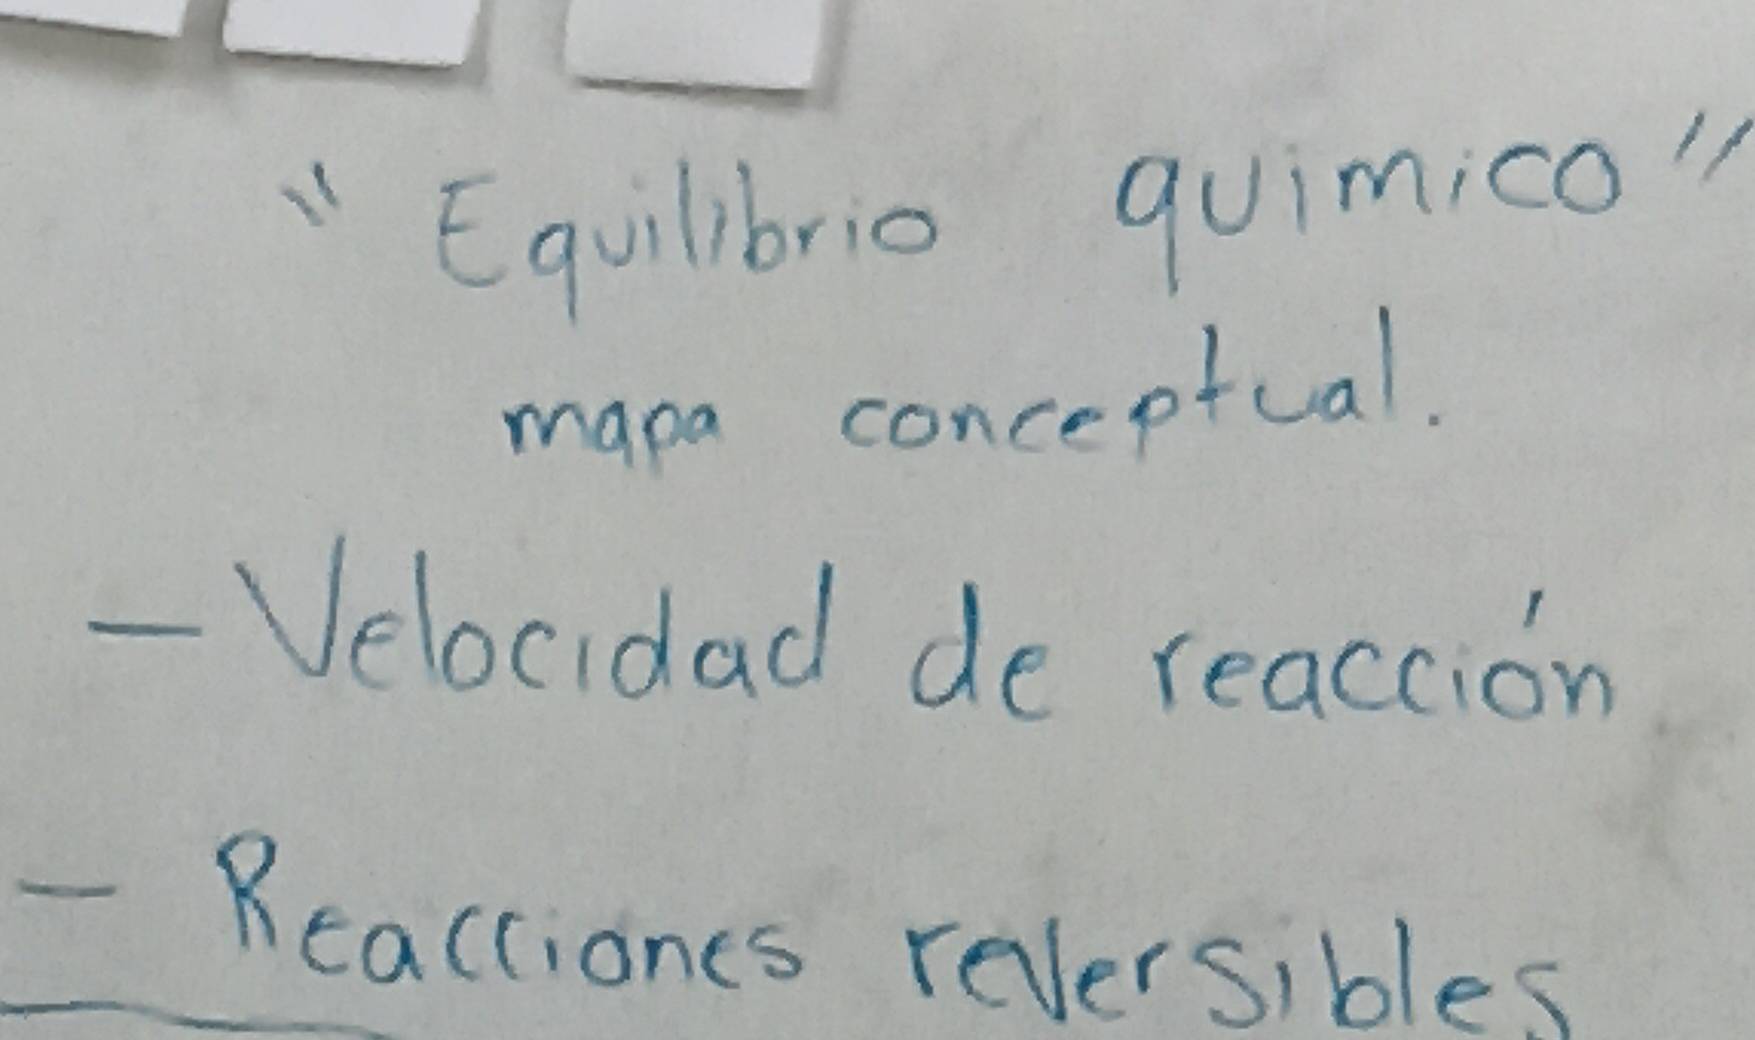 "Equilibrio quimico"
mapa conceptual.
- Velocidad de reacción
- Reacciones reversibles